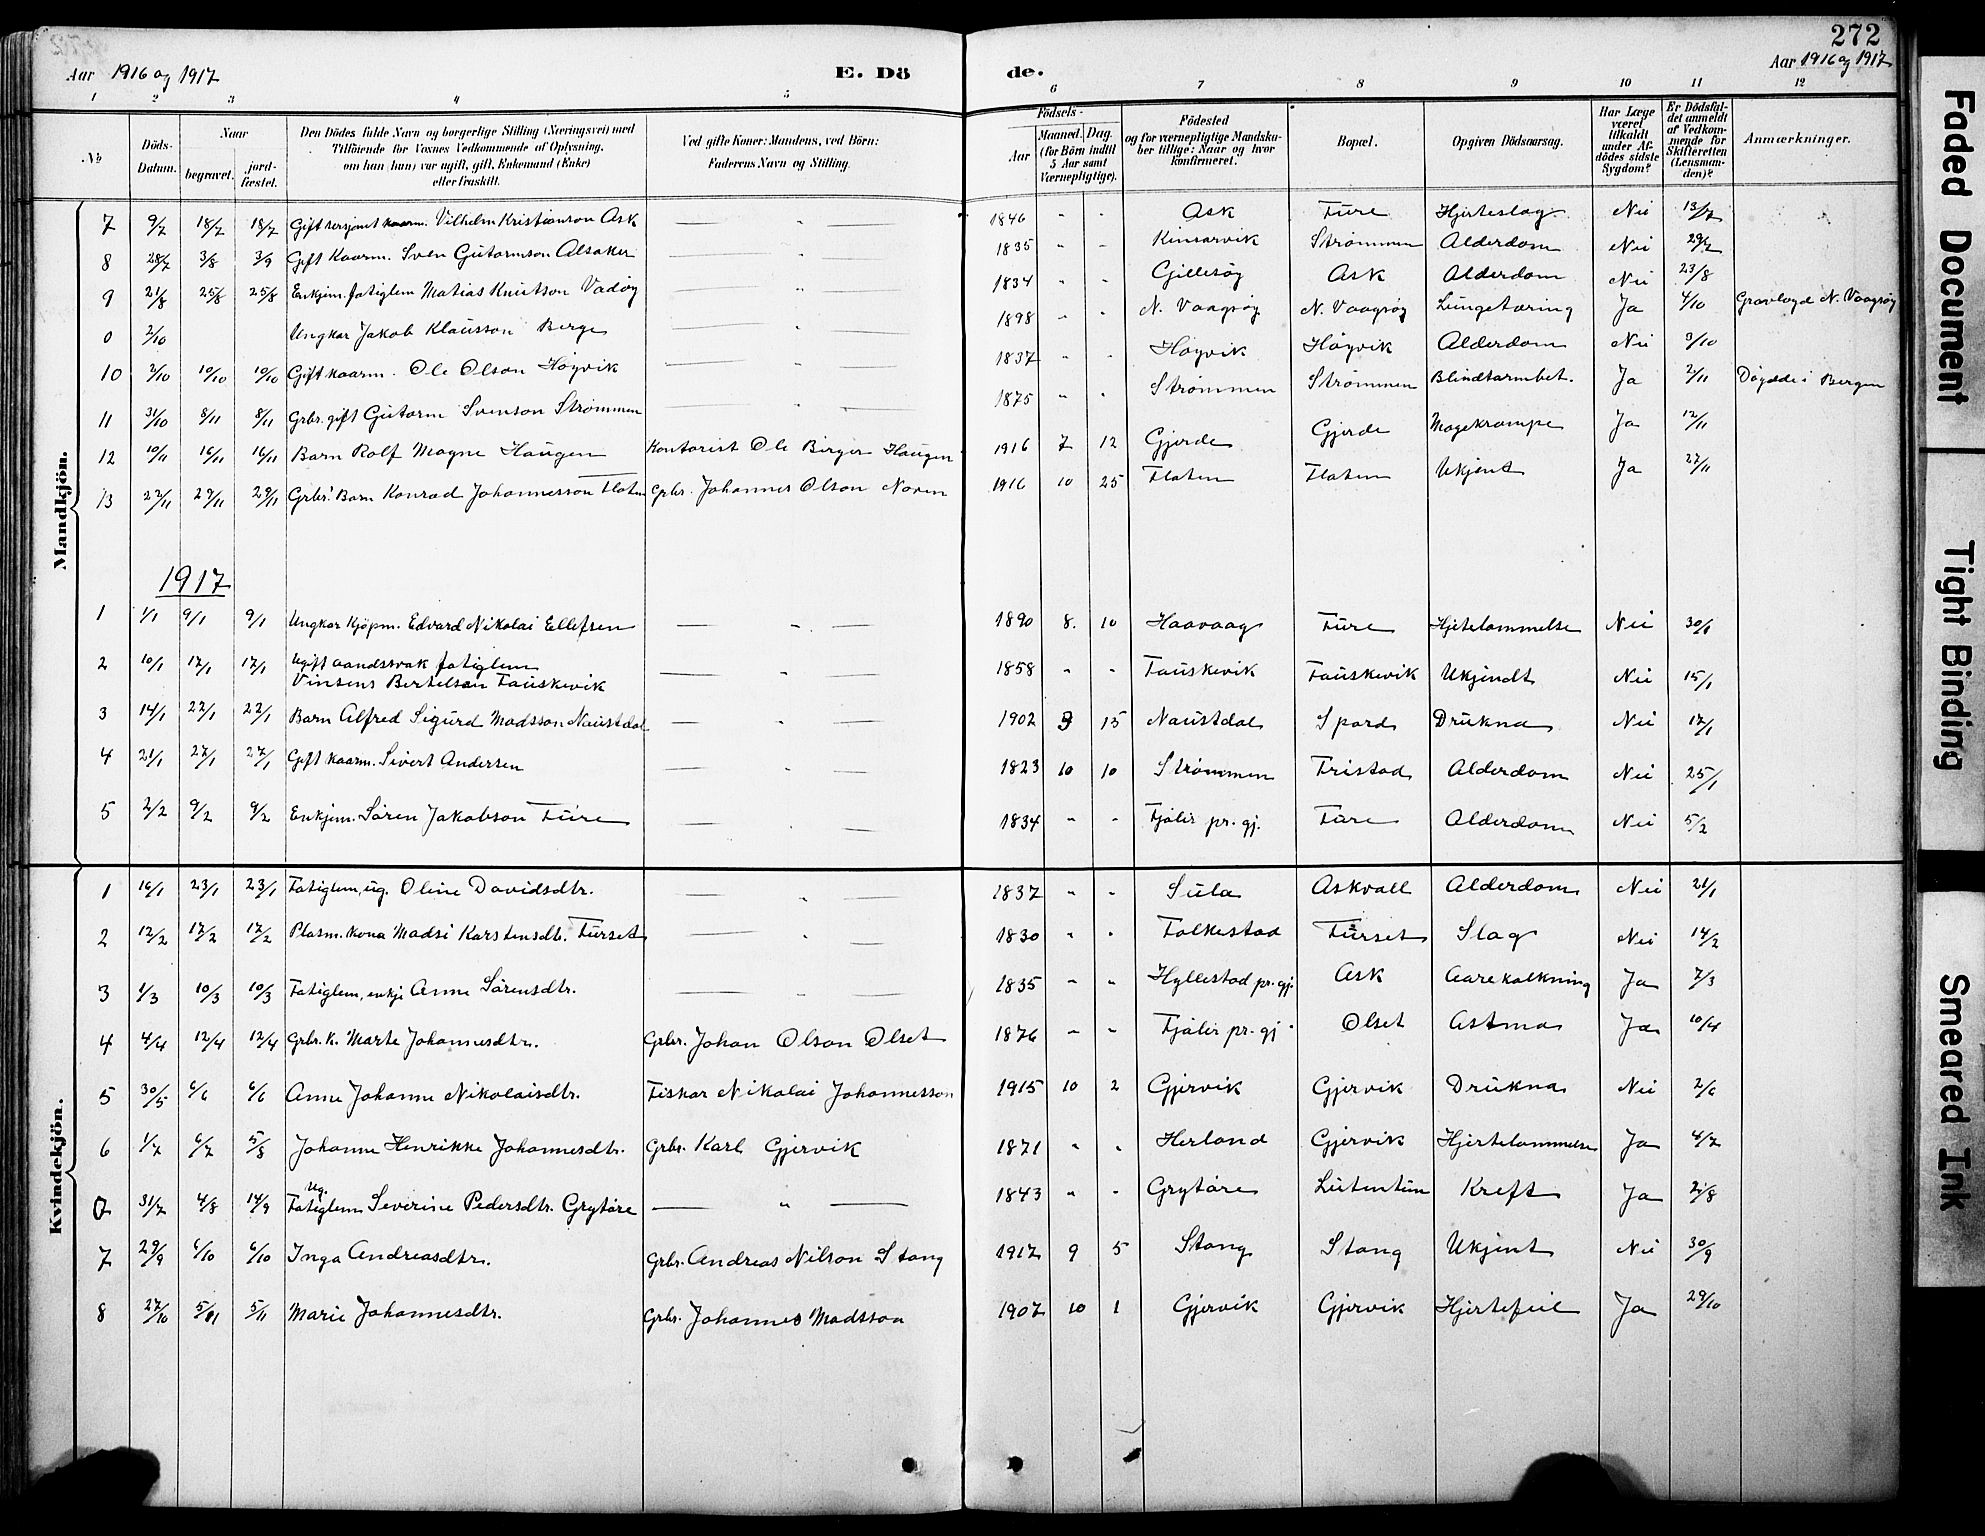 272
Aar 1916 og 1917 E. Dö de. Aar 1916 og 1917
1 2 3 4 5 6 7 8 9 10 11 12
No
Döds-Datum.
Naar
begravet.
jord-fæstet.
Den Dödes fulde Navn og borgerlige Stilling (Næringsvei) med
Tilföiende for Voxnes Vedkommende af Oplysning,
om han (hun) var ugift, gift, Enkemand (Enke)
eller fraskilt.
Ved gifte Koner: Mandens, ved Börn:
Faderens Navn og Stilling.
Födsels-
Aar
Maaned. Dag.
(for Börn indtil
5 Aar samt
Værnepligtige).
Födested
og for værnepligtige Mandska-
ber tillige: Naar og hvor
konfirmeret.
Bopæl.
Opgiven Dödsaarsag.
Har Læge
været
tilkaldt
under Af-
dödes sidste
Sygdom?
Er Dödsfal-
det anmeldt
af Vedkom-
mende for
Skifteretten
(Lensman-
den)?
Anmærkninger.
Mandkjön.
7 9/7 18/7 18/7 Gift sersjant kaarm. Vilhelm Kristianson Ask — " — 1846 " " Ask Fure Hjerteslag Nei 13/7
8 28/7 3/8 3/9 Gift Kaarm. Sven Gutormson Alsaker — " — 1835 " " Kinsarvik Strømmen Alderdom Nei 29/7
9 21/8 25/8 25/8 Enkjem. fatiglem Matias Knutson Vadøy — " — 1834 " " Gillesøy Ask Alderdom Nei 23/8
0 2/10 Ungkar Jakob Klausson Berge — " — 1898 " " N. Vaagsøy N. Vaagsøy Lungetæring Ja 4/10 Gravlagde N. Vaagsøy
10 2/10 10/10 10/10 Gift kaarm. Ole Olson Høyvik — " — 1837 " " Høyvik Høyvik Alderdom Nei 3/10
11 31/10 8/11 8/11 Grbr. gift Gutorm Svenson Strømmen — " — 1875 " " Strømmen Strømmen Blindtarmbet. Ja 2/11 Døydde i Bergen
12 10/11 16/11 16/11 Barn Rolf Magne Haugen Kontorist Ole Birger Haugen 1916 7 12 Gjerde Gjerde Magekrampe Ja 12/11
13 22/11 29/11 29/11 Grbr. Barn Konrad Johannesson Flaten Grbr. Johannes Olson Noven 1916 10 25 Flaten Flaten Ukjent Ja 27/11
1917
1 1/1 9/1 9/1 Ungkar Kjøpm. Edvard Nikolai Ellefsen — " — 1890 8. 10 Haavaag Fure Hjertelammelse Nei 30/1
2 10/1 17/1 17/1 Ugift aandssvak fatiglem
Vinsens Bertelsen Fauskevik — " — 1858 " " Fauskevik Fauskevik Ukjendt Nei 15/1
3 14/1 22/1 22/1 Barn Alfred Sigurd Madsson Naustdal — " — 1902 3 15 Naustdal Spord Drukna Nei 17/1
4 21/1 27/1 27/1 Gift Kaarm. Sivert Andersen — " — 1823 10 10 Strømmen Fristad Alderdom Nei 25/1
5 2/2 9/2 9/2 Enkjem. Søren Jakobson Fure — " — 1834 " " Fjaler pr. gj. Fure Alderdom Nei 5/2
Kvindekjön.
1 16/1 23/1 23/1 Fatiglem, ug. Oline Davidsdtr. — " — 1837 " " Sula Askvall Alderdom Nei 21/1
2 12/2 17/2 17/2 Plasm. kona Madsi Karstensdtr. Furset — " — 1830 " " Folkestad Furset Slag Nei 14/2
3 1/3 10/3 10/3 Fatiglem, enkje Anne Sørensdtr. — " — 1835 " " Hyllestad pr. gj. Ask Aarekalkning Ja 7/3
4 4/4 12/4 12/4 Grbr. k. Marte Johannesdtr. Grbr. Johan Olson Olset 1876 " " Fjaler pr. gj. Olset Astma Ja 10/4
5 30/5 6/6 6/6 Anne Johanne Nikolaisdtr. Fiskar Nikolai Johannesson 1915 10 2 Gjervik Gjervik Drukna Nei 2/6
6 1/7 6/7 5/8 Johanne Henrikke Johannesdtr. Grbr. Karl Gjervik 1871 " " Herland Gjervik Hjertelammelse Ja 4/7
Ug.
0 31/7 4/8 14/9 Fatiglem Severine Pedersdtr. Grytøre — " — 1843 " " Grytøre Lutentun Kreft Ja 2/8
7 29/9 6/10 6/10 Inga Andreasdtr. Grbr. Andreas Nilson Stang 1917 9 5 Stang Stang Ukjent Nei 30/9
8 27/10 5/11 5/11 Marie Johannesdtr. Grbr. Johannes Madsson 1907 10 1 Gjervik Gjervik Hjertefeil Ja 29/10
Faded Document
Tight Binding
Smeared Ink